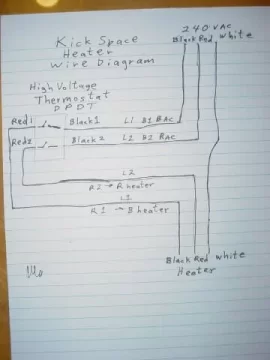 240 VAC
Black Red white
Kick Space
Heater
Wire Diagram
High Voltage
Thermostat
DPDT
Red1 Black1 L1 B1 BAC
Red2 Black2 L2 B2 RAC
L2
R2 → R heater
L1
R1 → B heater
Black Red white
Heater